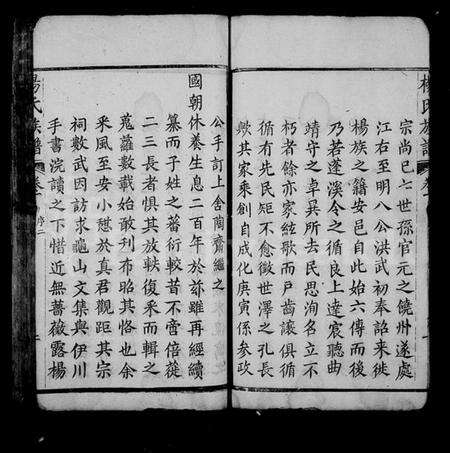 楊氏族譜
宗尚已七世孫官元之饒州遂處
江右至明八公洪武初奉詔来徙
楊族之籍安邑自此始六傳而後
乃若蓬溪令之循良上達宸聽曲
靖守之卓異所去民思洵名立不
朽者餘亦家絃歌而户齒讓俱循
循有先民矩不愈徵世澤之孔長
歟共家乘創自成化庚寅係參政
公手訂上舍蘭齋繼之
國朝休養生息二百年於茲雖再經續
纂而子姓之蕃衍較昔不啻倍蓰
二三長者惧其放軼復釆而輯之
蒐羅數載始敢刋布昭其恪也余
釆風至安小憩於真君觀距其宗
祠數武因訪求龜山文集與伊川
手書浣讀之下惜近無薔薇露楊
楊氏族譜